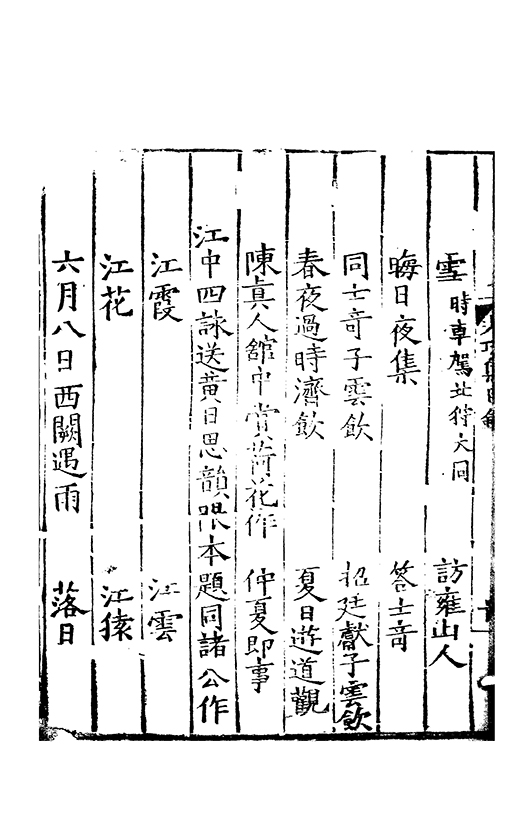 雪 時車駕北狩大同 訪雍山人
晦日夜集 答士奇
同士奇子雲飲 招廷獻子雲飲
春夜過時濟飲 夏日遊道觀
陳真人館中賞荷花作 仲夏即事
江中四詠送黄日思韻限本題同諸公作
江霞 江雲
江花 江猿
六月八日西闕遇雨 落日